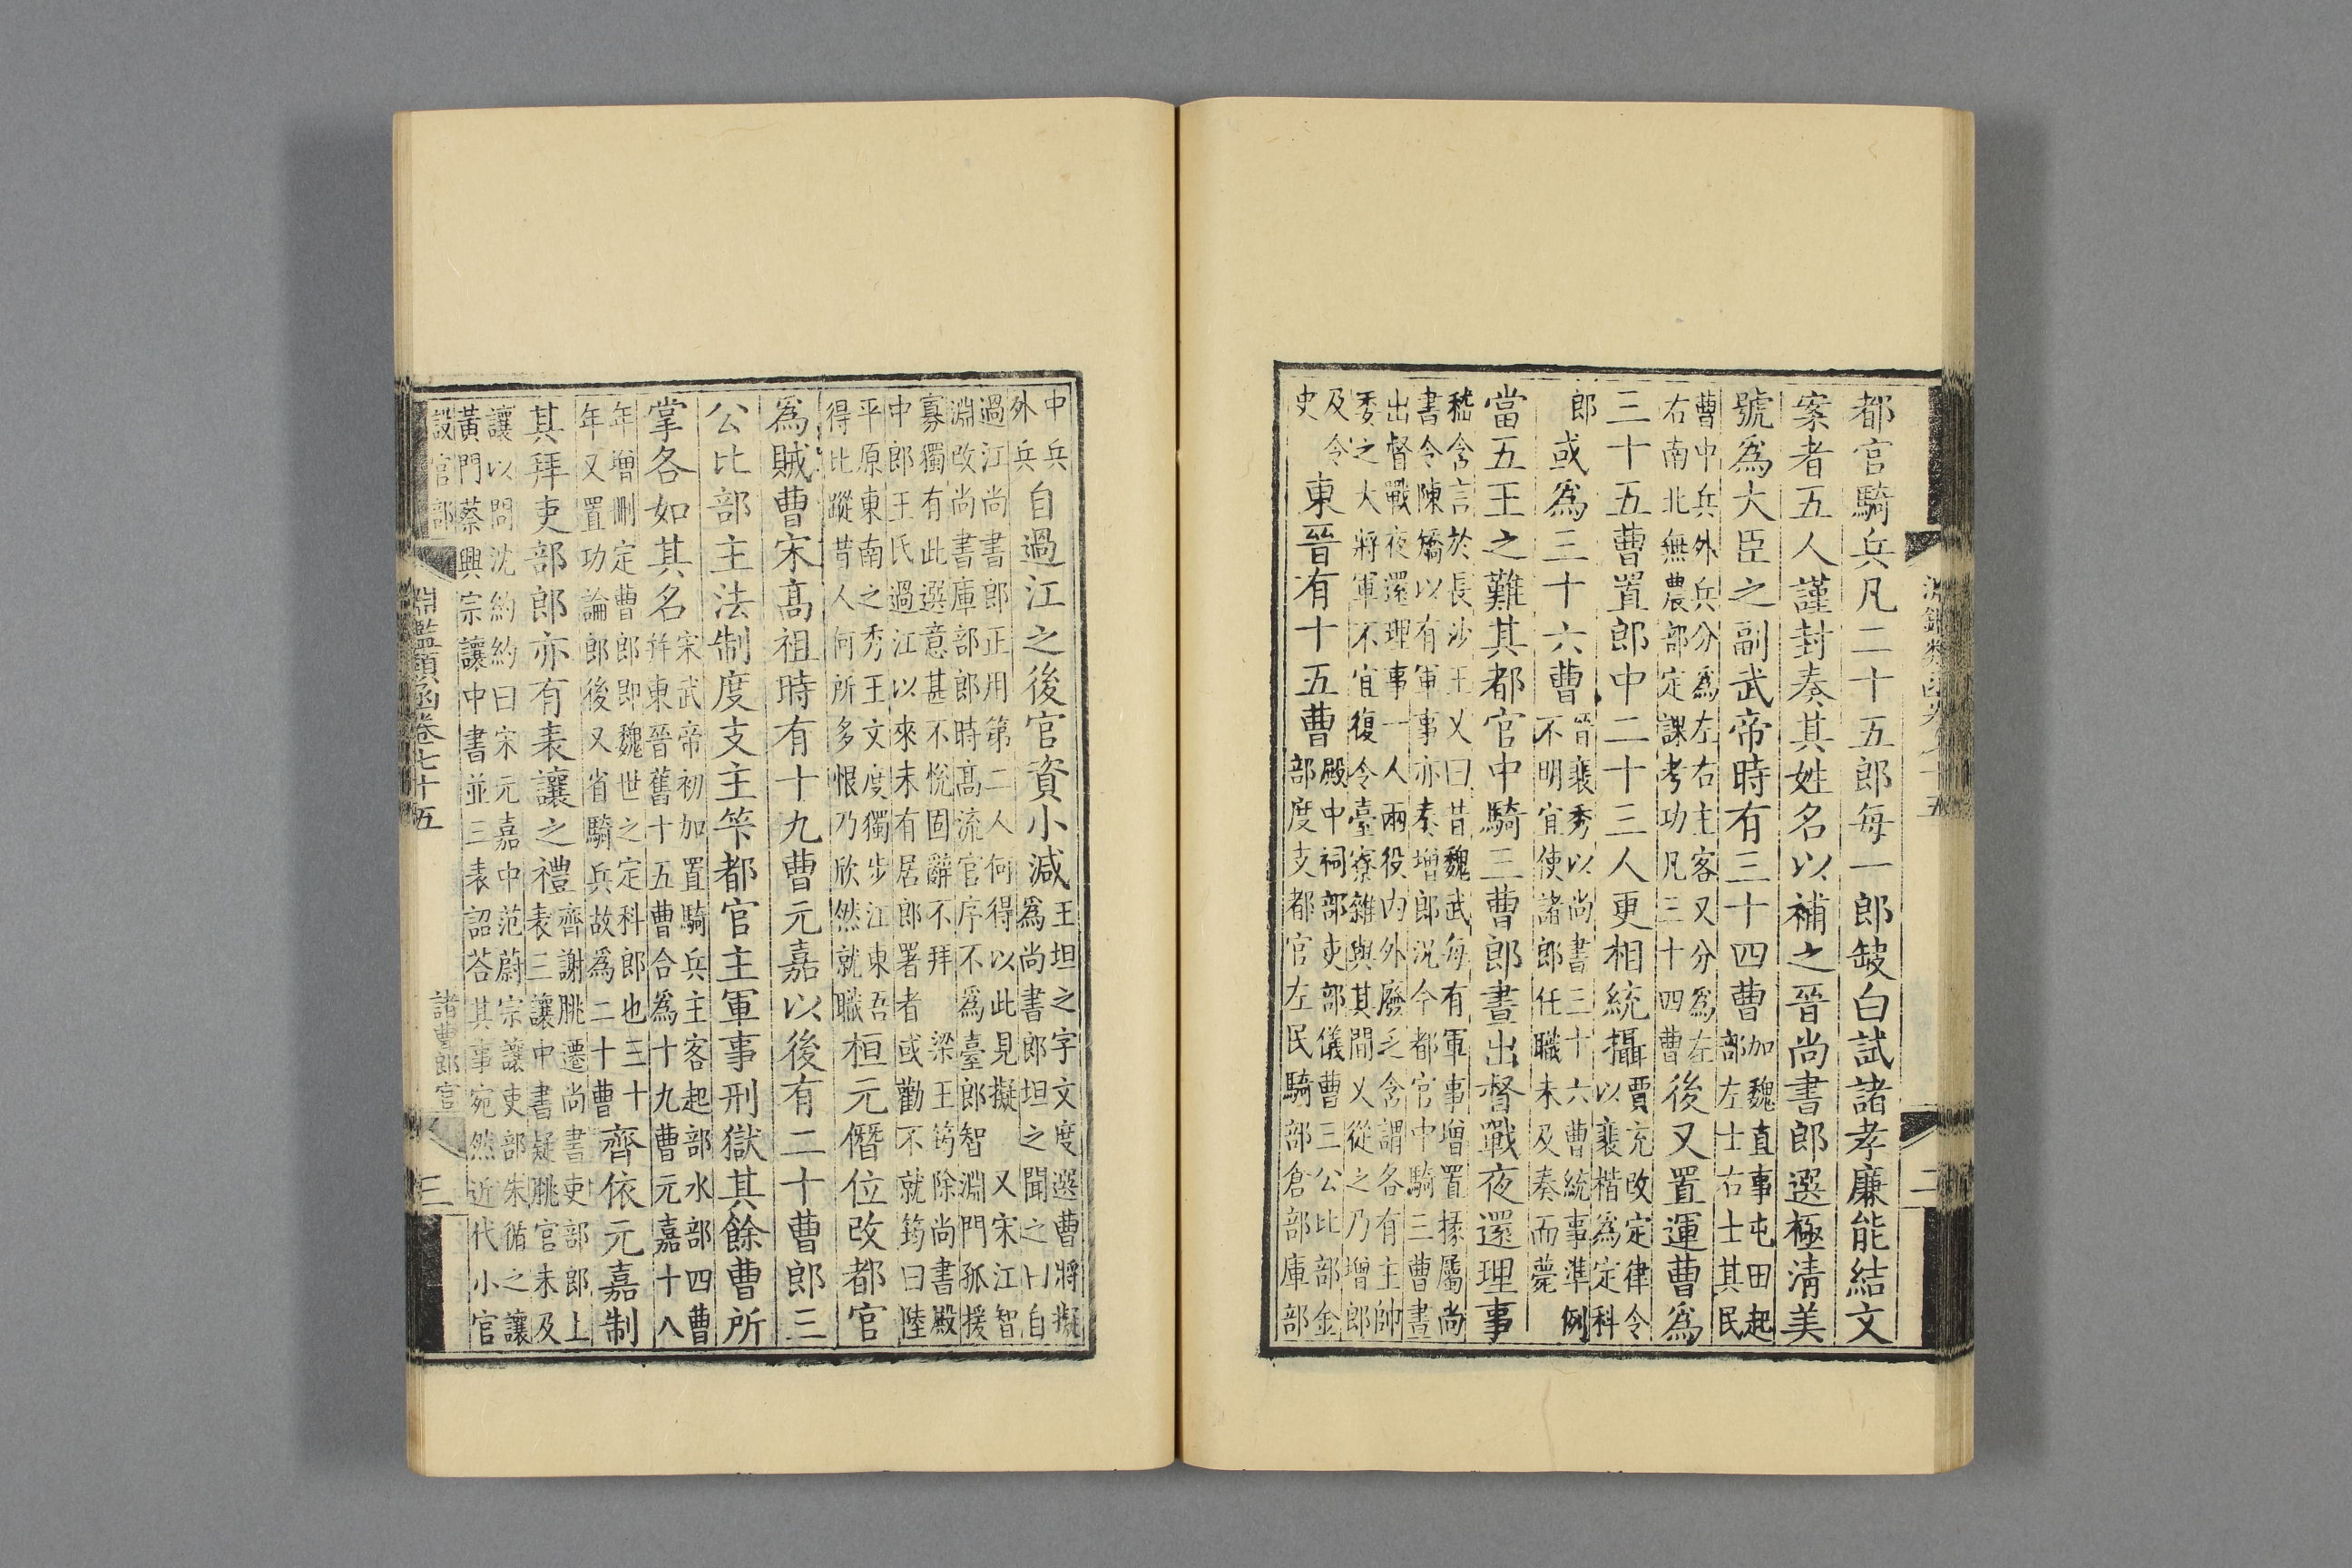 都官騎兵凡二十五郎每一郎缺白試諸孝廉能結文
案者五人謹封奏其姓名以補之晉尚書郎選極清美
號爲大臣之副武帝時有三十四曹
加魏直事屯田起
部左士右士其民
曹中兵外兵分爲左右主客又分爲左
右南北無農部定課考功凡三十四曹
後又置運曹爲
三十五曹置郎中二十三人更相統攝
賈充改定律令
以裴楷爲定科
郎
或爲三十六曹
晉裴秀以尚書三十六曹統事準例
不明宜使諸郎任職未及奏而薨
當五王之難其都官中騎三曹郎晝出督戰夜還理事
嵇含言於長沙王乂曰昔魏武每有軍事增置掾屬尚
書令陳矯以有軍事亦奏增郎況今都官中騎三曹晝
出督戰夜還理事一人兩役內外廢乏含謂各有主帥
委之大將軍不宜復令臺寮雜與其間乂從之乃增郎
及令
史
東晉有十五曹
殿中祠部吏部儀曹三公比部金
部度支都官左民騎部倉部庫部
中兵
外兵
自過江之後官資小減
王坦之字文度選曹將擬
爲尚書郎坦之聞之曰自
過江尚書郎正用第二人何得以此見擬 又宋江智
淵改尚書庫部郎時高流官序不爲臺郎智淵門孤援
寡獨有此選意甚不悅固辭不拜 梁王筠除尚書殿
中郎王氏過江以來未有居郎署者或勸不就筠曰陸
平原東南之秀王文度獨步江東吾
得比蹤昔人何所多恨乃欣然就職
桓元僭位改都官
爲賊曹宋高祖時有十九曹元嘉以後有二十曹郎三
公比部主法制度支主筭都官主軍事刑獄其餘曹所
掌各如其名
宋武帝初加置騎兵主客起部水部四曹
幷東晉舊十五曹合爲十九曹元嘉十八
年增刪定曹郎即魏世之定科郎也三十
年又置功論郎後又省騎兵故爲二十曹
齊依元嘉制
其拜吏部郎亦有表讓之禮
齊謝朓遷尚書吏部郎上
表三讓中書疑朓官未及
讓以問沈約約曰宋元嘉中范蔚宗讓吏部朱循之讓
黃門蔡興宗讓中書並三表詔荅其事宛然近代小官
設官部
諸曹郎官
淵鑑類函卷七十五
三